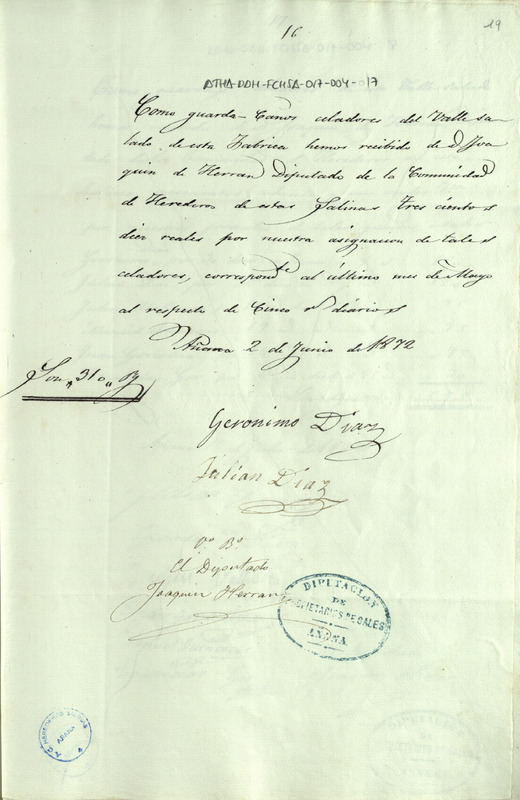 16
19
ATHA-DDH-FCHSA-017-004-17
Como guarda-Caños celadores del Valle sa-
lado de esta Fabrica hemos recibido de D Joa
quin de Herran Diputado de la Comunidad
de Herederos de estas Salinas tres cientos
diez reales por nuestra asignacion de tales
celadores, correspond.te al último mes de Mayo
al respecto de Cinco r.s diarios
Añana 2 de Junio de 1872
Son "310" R
Geronimo Diaz
Julian Diaz
V.o B.o
El Diputado
Joaquin Herran
DIPUTACION
DE
PROPIETARIOS DE SALES
AÑANA